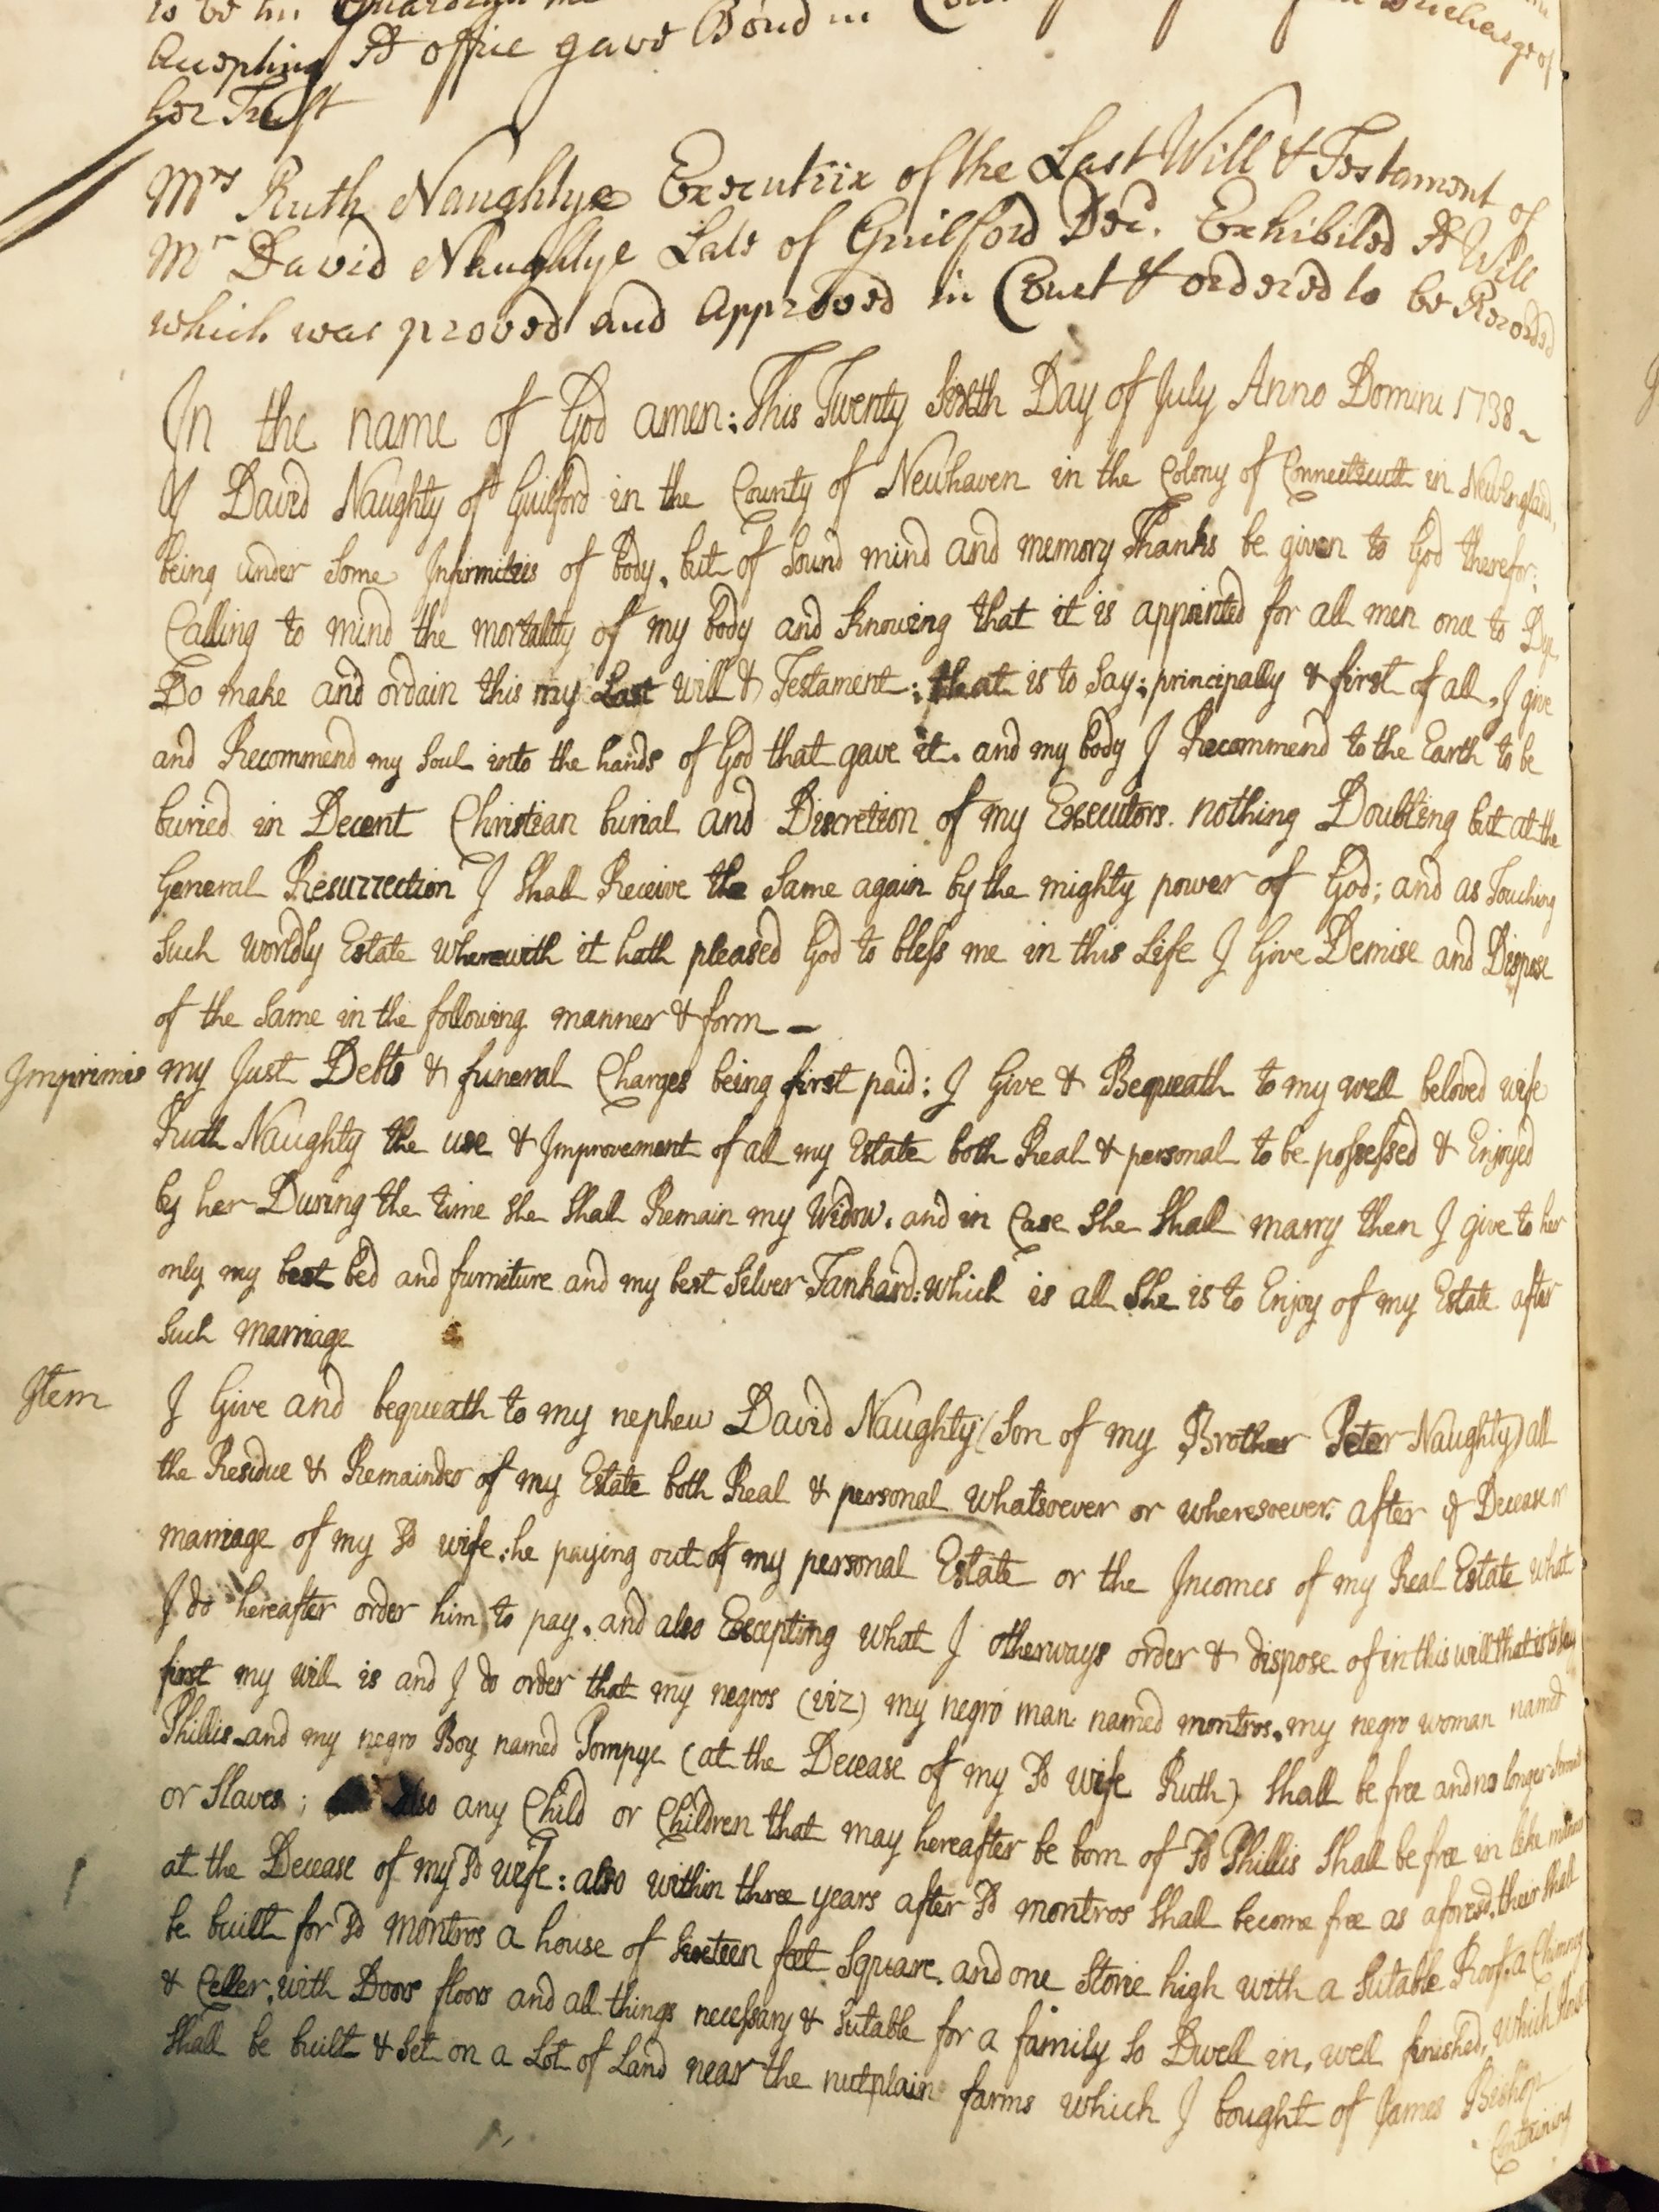 is be his Guardian
Accepting sd office gave Bond in Discharge of
her Trust
Mrs Ruth Naughtye Executrix of the Last Will & Testament of
Mr David Naughtye Late of Guilford Decd. Exhibited sd Will
which was proved and Approved in Court & ordered to be Recorded
In the name of God amen: This Twenty Sixth Day of July Anno Domini 1738
I David Naughty of Guilford in the County of Newhaven in the Colony of Connecticutt in NewEngland,
being under Some Infirmities of body, but of Sound mind and memory Thanks be given to God therefor:
Calling to mind the mortality of my body and knowing that it is appointed for all men once to Dye,
Do make and ordain this my Last will & Testament; that is to Say; principally & first of all, I give
and Recommend my Soul into the hands of God that gave it. and my body I Recommend to the Earth to be
buried in Decent Christian burial and Discretion of my Executors. nothing Doubting but at the
General Resurrection I Shall Receive the Same again by the mighty power of God; and as Touching
Such worldly Estate wherewith it hath pleased God to bless me in this Life I Give Demise and Dispose
of the Same in the following manner & form
Imprimis my Just Debts & funeral Charges being first paid: I Give & Bequeath to my well beloved wife
Ruth Naughty the use & Improvement of all my Estate both Real & personal to be possessed & Enjoyed
by her During the time She Shall Remain my Widow. and in Case She Shall marry then I give to her
only my best bed and furniture and my best Silver Tankard: which is all She is to Enjoy of my Estate after
Such marriage
Item I Give and bequeath to my nephew David Naughty (Son of my Brother Peter Naughty) all
the Residue & Remainder of my Estate both Real & personal whatsoever or wheresoever: after ye Decease or
marriage of my sd wife: he paying out of my personal Estate or the Incomes of my Real Estate what
I do hereafter order him to pay, and also Excepting what I otherways order & dispose of in this will that is to Say
first my will is and I do order that my negros (viz) my negro man named montros, my negro woman named
Phillis and my negro Boy named Pompye (at the Decease of my sd wife Ruth) Shall be free and no longer Servants
or Slaves; also any Child or Children that may hereafter be born of sd Phillis Shall be free in like manner
at the Decease of my sd wife: also within three years after sd montros Shall become free as aforesd. their Shall
be built for sd montros a house of Sixteen feet Square. and one Storie high with a Sutable Roof. a Chimney
& Celler, with Doors floors and all things necessary & Sutable for a family to Dwell in, well finished, which house
Shall be built & Set on a Lot of Land near the nutplain farms which I bought of James Bishop
Containing